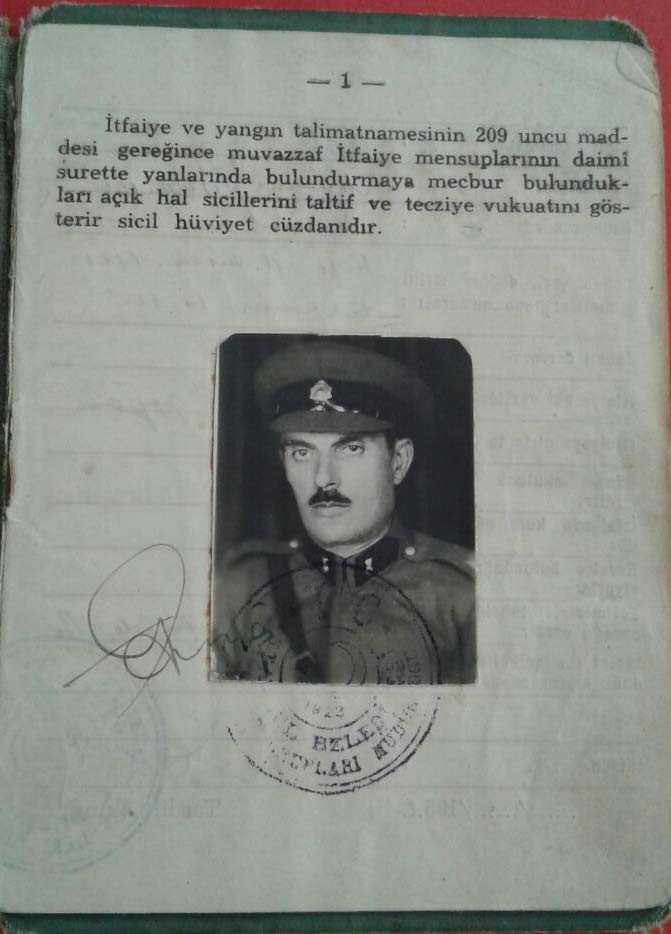 — 1 —
İtfaiye ve yangın talimatnamesinin 209 uncu mad-
desi gereğince muvazzaf İtfaiye mensuplarının daimî
surette yanlarında bulundurmaya mecbur bulunduk-
ları açık hal sicillerini taltif ve tecziye vukuatını gös-
terir sicil hüviyet cüzdanıdır.
1923